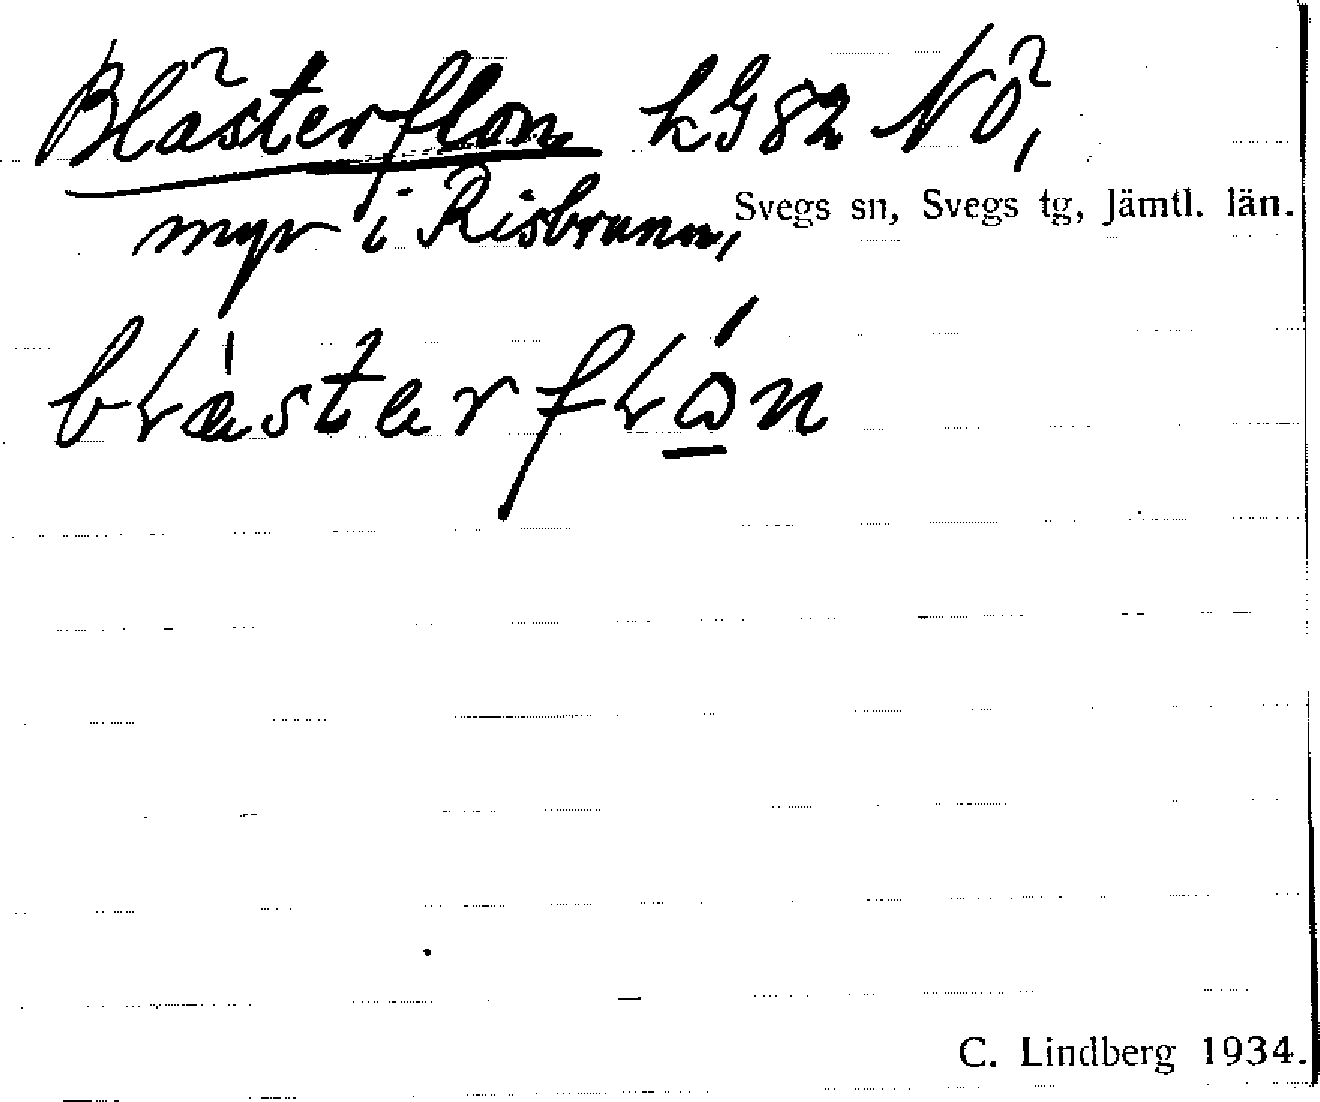 Blästerflon kG82 NÖ,
myr i Risbrunn, Svegs sn, Svegs tg, Jämtl. län.
blæsterflón
C. Lindberg 1934.